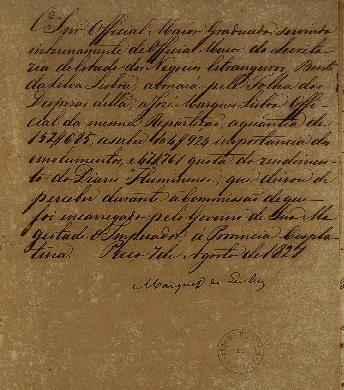 O Snr. Official Maior Graduado, servindo
interinamente de Official Maior da Secreta-
ria de Estado dos Negocios Estrangeiros, Bento
da Silva Lisboa, abonará pela Folha das
Despezas della, a José Marques Lisboa Offi-
cial da mesma Repartição, a quantia de
152$685, a saber 104$924 importancia dos
emolumentos, e 47$761 quota do rendimen-
to do Diario Fluminense, que deixou de
perceber durante a commissão de que
foi encarregado pelo Governo de Sua Ma-
gestade O Imperador á Provincia Cispla-
tina. Paço 7 de Agosto de 1827
Marquez de Queluz